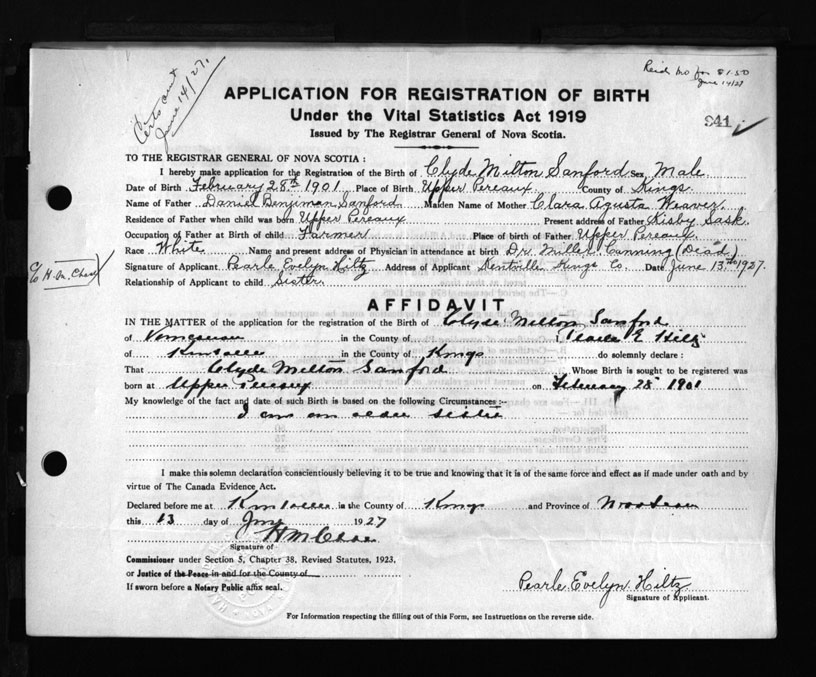 Certs out
June 14/27.
Recd Mo for $1.50
June 14/27
APPLICATION FOR REGISTRATION OF BIRTH
Under the Vital Statistics Act 1919
941 ✓
Issued by The Registrar General of Nova Scotia.
TO THE REGISTRAR GENERAL OF NOVA SCOTIA :
I hereby make application for the Registration of the Birth of Clyde Milton Sanford Sex Male
Date of Birth February 28th 1901 Place of Birth Upper Pereaux County of Kings
Name of Father Daniel Benjiman Sanford Maiden Name of Mother Clara Agusta Weaver
Residence of Father when child was born Upper Pereaux Present address of Father Kisby Sask.
Occupation of Father at Birth of child Farmer Place of birth of Father Upper Pereaux
Race White Name and present address of Physician in attendance at birth Dr. Miller Canning (Dead)
Signature of Applicant Pearle Evelyn Hiltz Address of Applicant Kentville Kings Co. Date June 13th 1927.
Relationship of Applicant to child Sister
AFFIDAVIT
IN THE MATTER of the application for the registration of the Birth of Clyde Milton Sanford
of in the County of Pearle E Hiltz
of Kentville in the County of Kings do solemnly declare :
That Clyde Milton Sanford Whose Birth is sought to be registered was
born at Upper Pereaux on February 28 1901
My knowledge of the fact and date of such Birth is based on the following Circumstances :-
I am an older sister
I make this solemn declaration conscientiously believing it to be true and knowing that it is of the same force and effect as if made under oath and by
virtue of The Canada Evidence Act.
Declared before me at Kentville in the County of Kings and Province of
this 13 day of June 1927
Signature of
Commissioner under Section 5, Chapter 38, Revised Statutes, 1923,
or Justice of the Peace in and for the County of
If sworn before a Notary Public affix seal.
Pearle Evelyn Hiltz
Signature of Applicant.
For Information respecting the filling out of this Form, see Instructions on the reverse side.